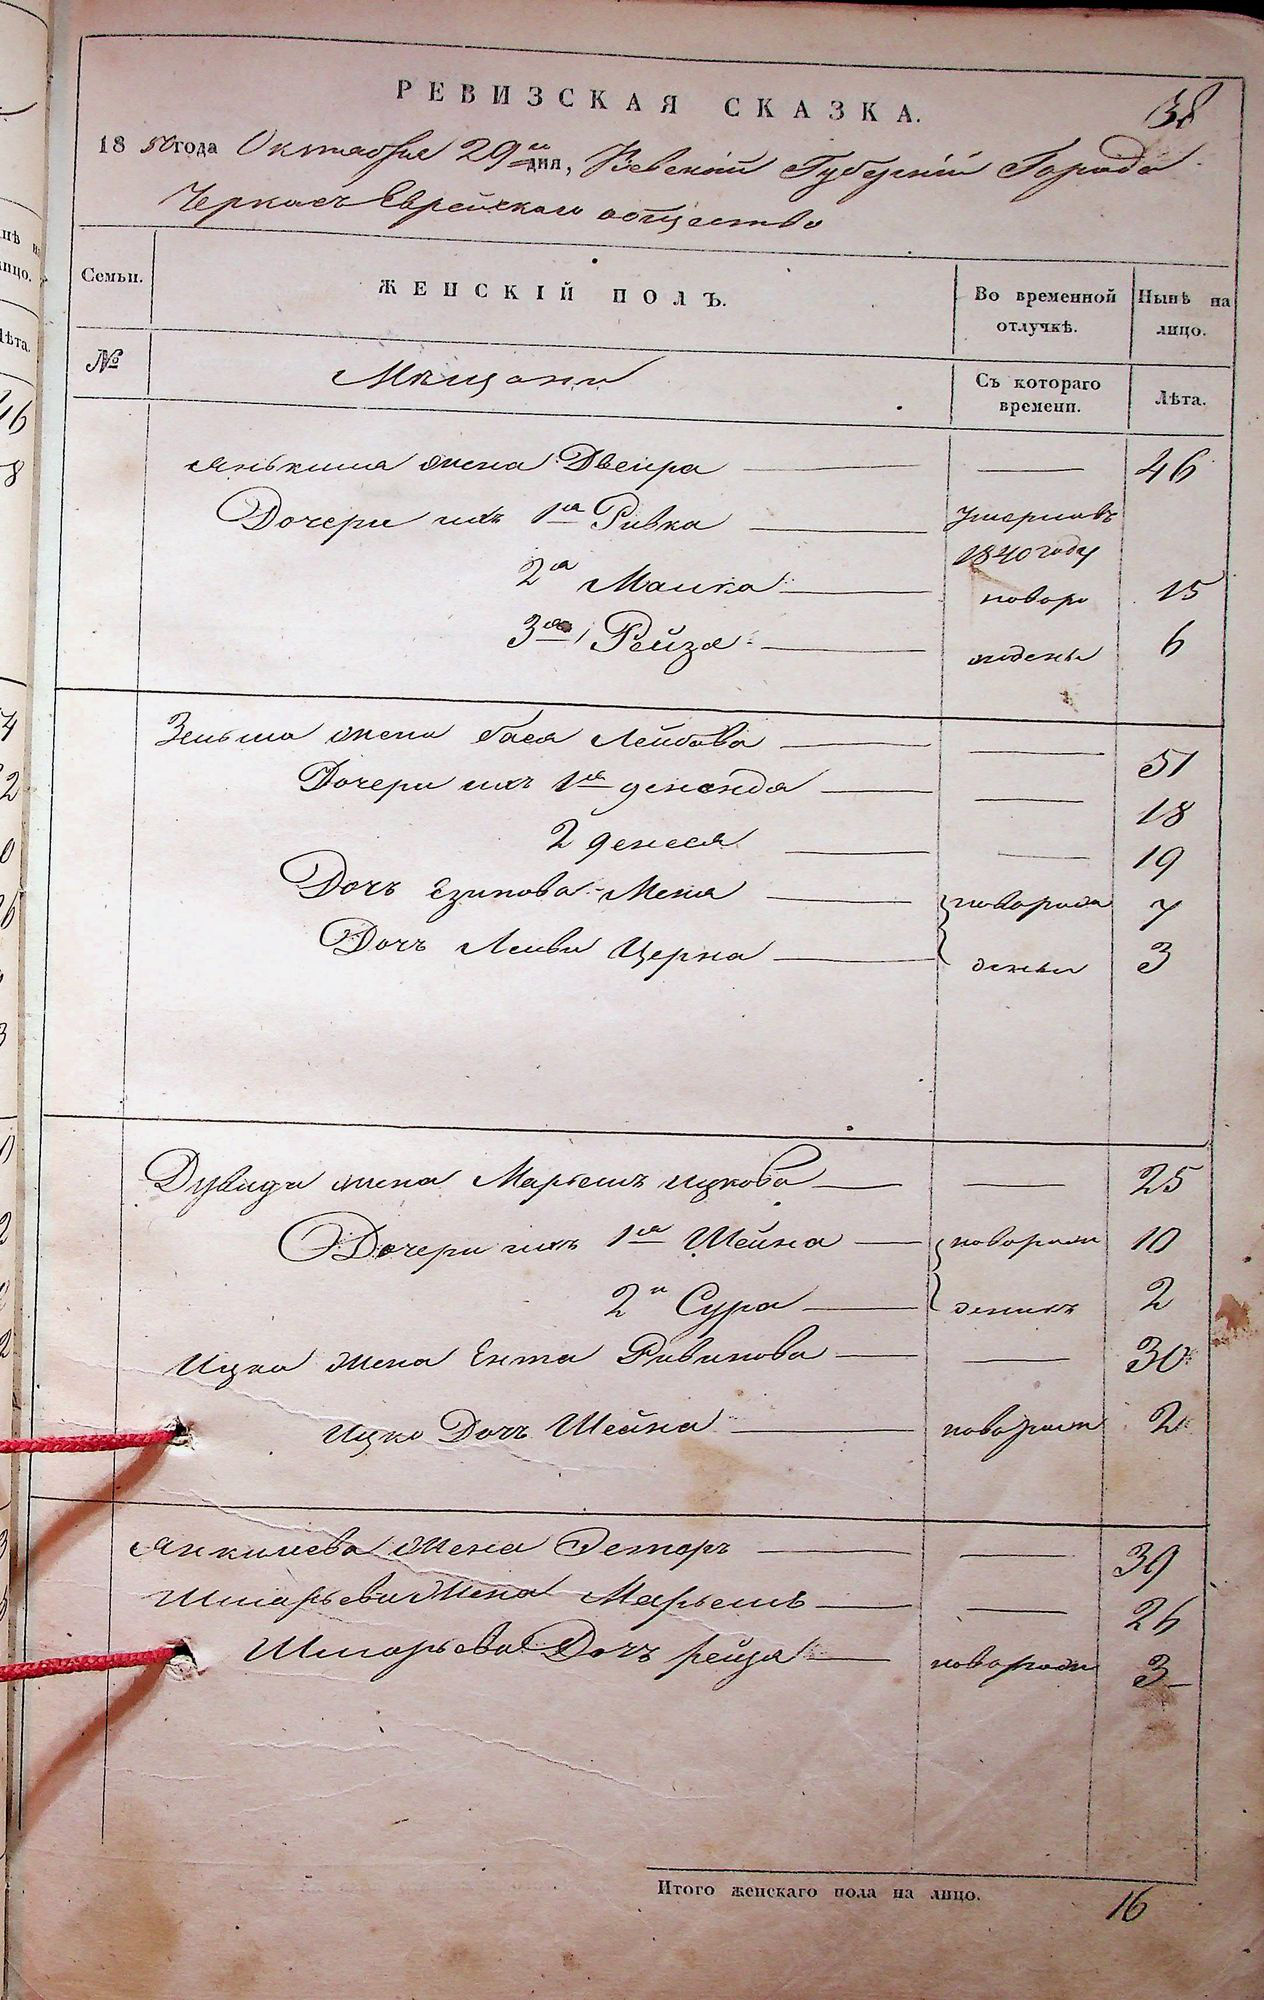 38
РЕВИЗСКАЯ СКАЗКА.
1850 года Октября 29го дня, Киевской Губерніи Города
Черкасъ Еврейскаго общества
Семьи. ЖЕНСКІЙ ПОЛЪ. Во временной отлучкѣ. Нынѣ на лицо.
№ Мещани Съ котораго времени. Лѣта.
Янькиша жена Двейра — — 46
Дочери ихъ 1я Ривка — умерла въ 1840 году
2я Малка — поворо 15
3я Рейзя — подены 6
Зельма жена Бася Лейбова — — 51
Дочери ихъ 1я — — 18
2 — — 19
Дочъ Меня — новорож 7
Дочъ Лейви Церна — дены 3
Дувида жена Марьемъ Ицкова — — 25
Дочери ихъ 1я Шейна — новорож 10
2я Сура — 2
Ицка жена Ента Ривинова — — 30
Ицко Дочъ Шейна — новорож 2
Янкилева жена Эстеръ — — 39
Шмарьеви жена Марьемъ — — 26
Шмарьева Дочъ рейзя — новорож 3
Итого женскаго пола на лицо. 16